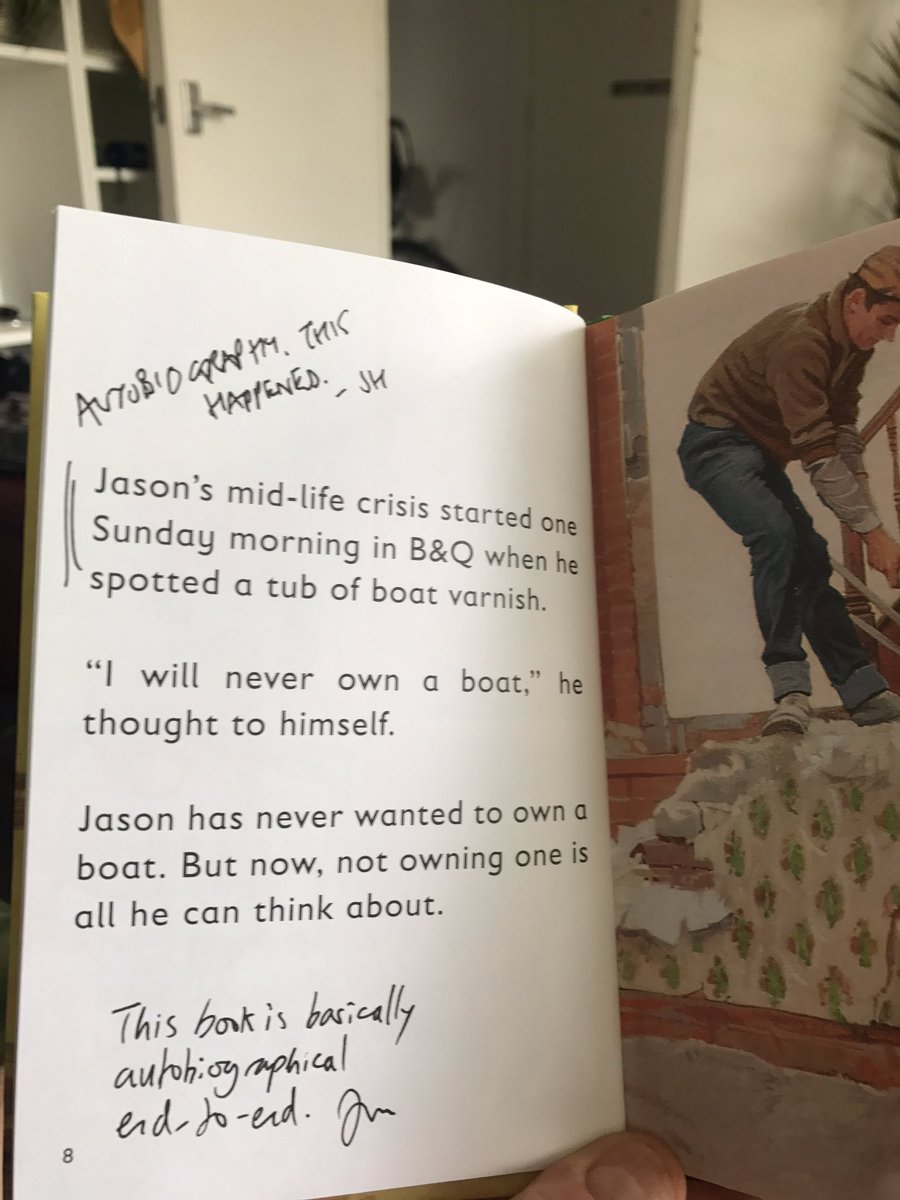 AUTOBIOGRAPHY. THIS
HAPPENED. - JH
Jason's mid-life crisis started one
Sunday morning in B&Q when he
spotted a tub of boat varnish.
"I will never own a boat," he
thought to himself.
Jason has never wanted to own a
boat. But now, not owning one is
all he can think about.
This book is basically
autobiographical
end-to-end.
8